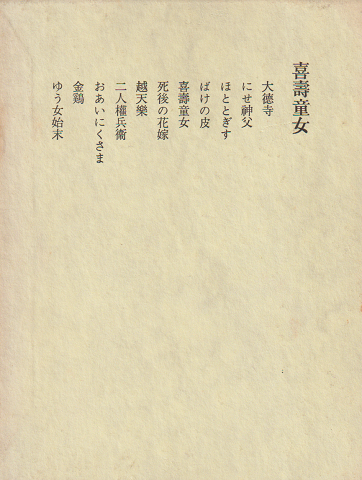 喜壽童女
大德寺
にせ神父
ほととぎす
ばけの皮
喜壽童女
死後の花嫁
越天樂
二人權兵衞
おあいにくさま
金鷄
ゆう女始末